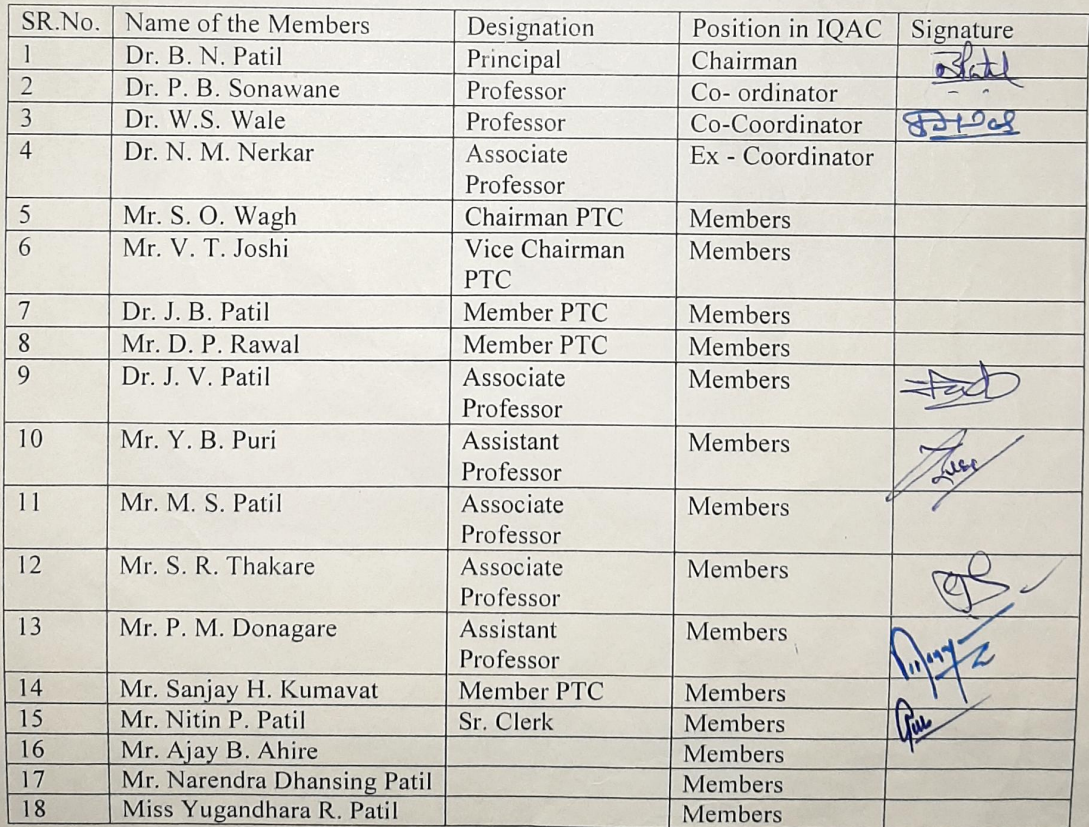 SR.No. Name of the Members Designation Position in IQAC Signature
1 Dr. B. N. Patil Principal Chairman
2 Dr. P. B. Sonawane Professor Co- ordinator
3 Dr. W.S. Wale Professor Co-Coordinator
4 Dr. N. M. Nerkar Associate Ex - Coordinator
Professor
5 Mr. S. O. Wagh Chairman PTC Members
6 Mr. V. T. Joshi Vice Chairman Members
PTC
7 Dr. J. B. Patil Member PTC Members
8 Mr. D. P. Rawal Member PTC Members
9 Dr. J. V. Patil Associate Members
Professor
10 Mr. Y. B. Puri Assistant Members
Professor
11 Mr. M. S. Patil Associate Members
Professor
12 Mr. S. R. Thakare Associate Members
Professor
13 Mr. P. M. Donagare Assistant Members
Professor
14 Mr. Sanjay H. Kumavat Member PTC Members
15 Mr. Nitin P. Patil Sr. Clerk Members
16 Mr. Ajay B. Ahire Members
17 Mr. Narendra Dhansing Patil Members
18 Miss Yugandhara R. Patil Members